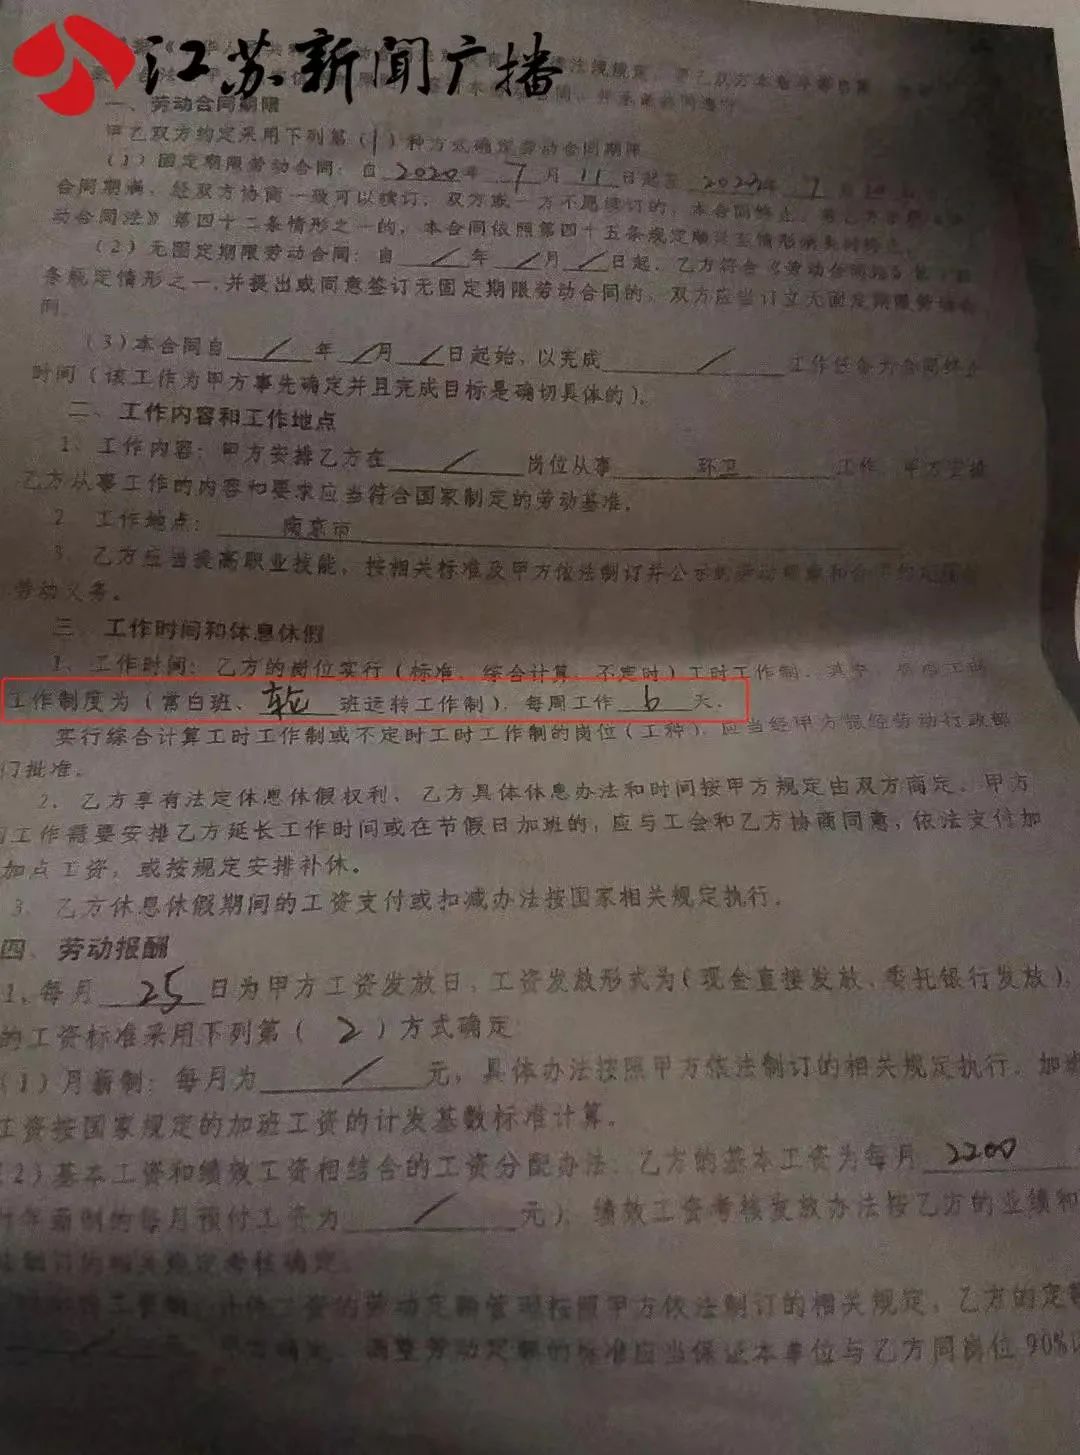 江苏新闻广播
一、劳动合同期限
甲乙双方约定采用下列第(1)种方式确定劳动合同期限
(1)固定期限劳动合同:自2020年7月11日起至2023年7月
合同期满,经双方协商一致可以续订;双方或一方不愿续订的,本合同终止。
动合同法》第四十二条情形之一的,本合同依照第四十五条规定
(2)无固定期限劳动合同:自/年/月/日起,乙方符合《劳动合同法》
条规定情形之一,并提出或同意签订无固定期限劳动合同的,双方应当订立无固定期限劳动合
同。
(3)本合同自/年/月/日起始,以完成/工作任务为合同终止
时间(该工作为甲方事先确定并且完成目标是确切具体的)。
二、工作内容和工作地点
1、工作内容:甲方安排乙方在/岗位从事环卫工作,甲方安排
乙方从事工作的内容和要求应当符合国家制定的劳动基准。
2、工作地点:南京市
3、乙方应当提高职业技能,按相关标准及甲方依法制订并公示的
劳动义务。
三、工作时间和休息休假
1、工作时间:乙方的岗位实行(标准、综合计算、不定时)工时工作制,
工作制度为(常白班、轮班运转工作制),每周工作6天。
实行综合计算工时工作制或不定时工时工作制的岗位(工种),应当经甲方报经劳动行政部
门批准。
2、乙方享有法定休息休假权利,乙方具体休息办法和时间按甲方规定由双方商定。甲方
工作需要安排乙方延长工作时间或在节假日加班的,应与工会和乙方协商同意,依法支付加
加点工资,或按规定安排补休。
3、乙方休息休假期间的工资支付或扣减办法按国家相关规定执行。
四、劳动报酬
1、每月25日为甲方工资发放日,工资发放形式为(现金直接发放、委托银行发放),
的工资标准采用下列第(2)方式确定:
(1)月薪制:每月为/元,具体办法按照甲方依法制订的相关规定执行。加班
工资按国家规定的加班工资的计发基数标准计算。
(2)基本工资和绩效工资相结合的工资分配办法:乙方的基本工资为每月2200
行年薪制的每月预付工资为/元),绩效工资考核发放办法按乙方的业绩和
制订的相关规定考核确定。
劳动定额管理按照甲方依法制订的相关规定,乙方的定额
/调整劳动定额的标准应当保证本单位与乙方同岗位90%